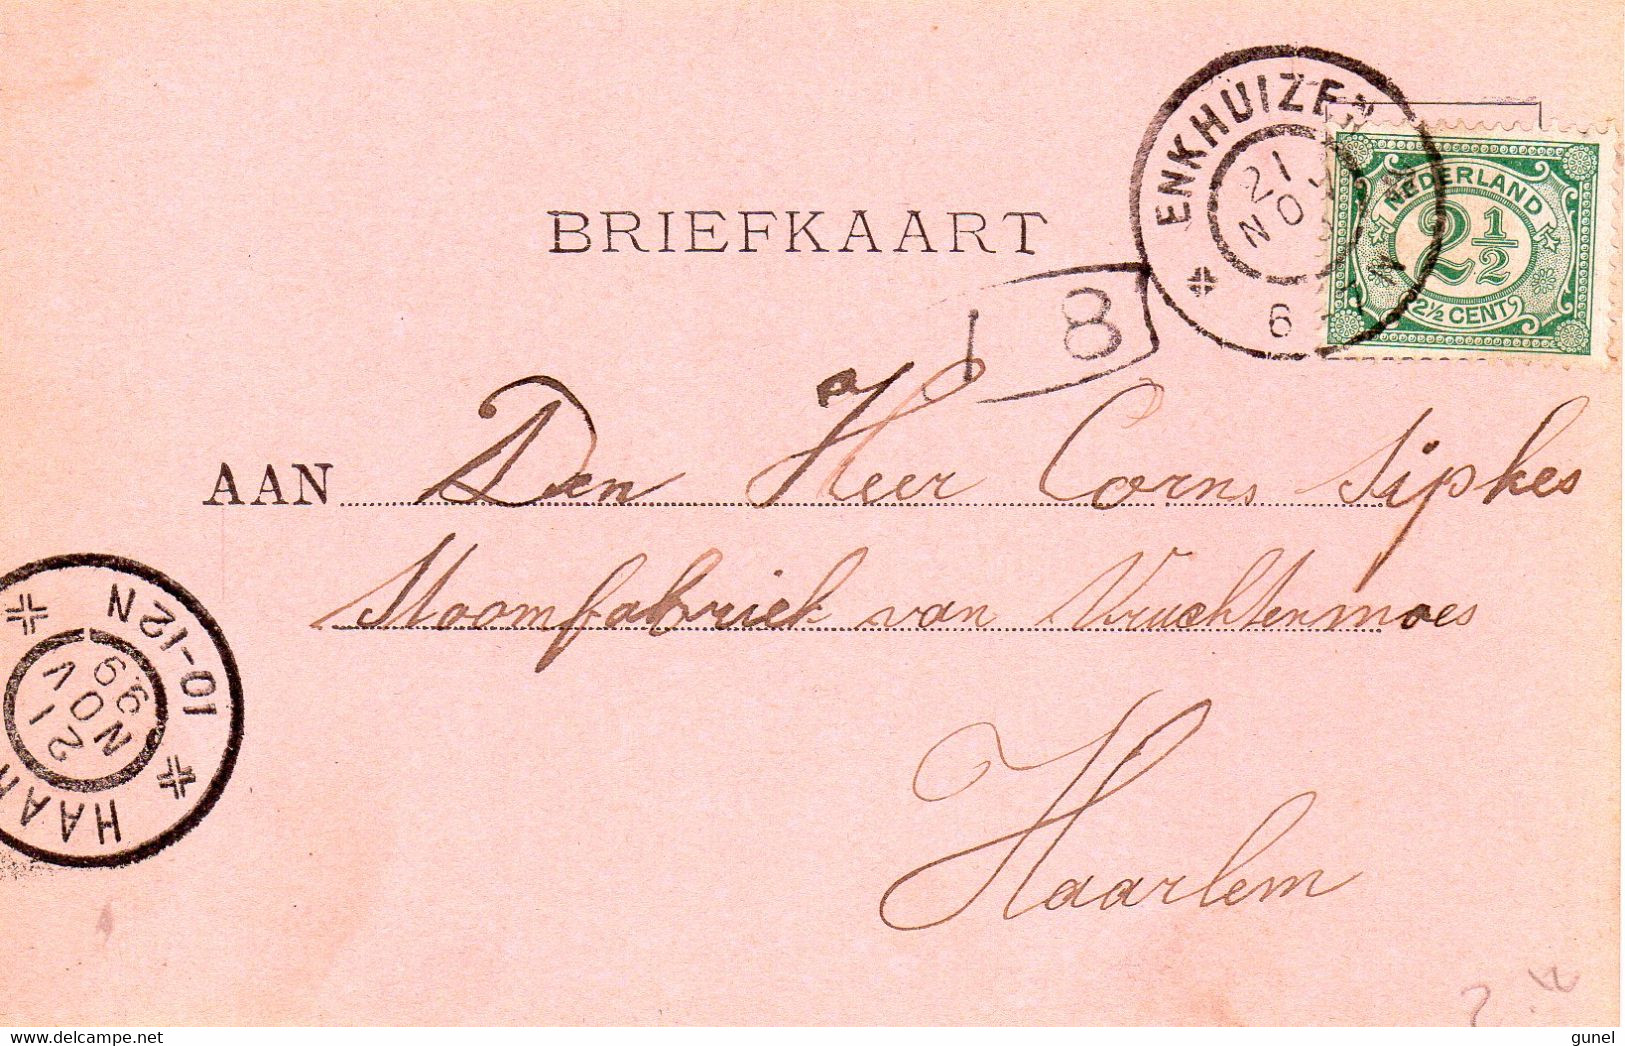 ENKHUIZEN
21 NOV
6
N
NEDERLAND
2 1/2
2½ CENT
BRIEFKAART
18
AAN Den Heer Corns Sipkes
Stoomfabriek van Vruchtenmoes
Haarlem
10-12N
21
NOV
99
HAAR
gunel